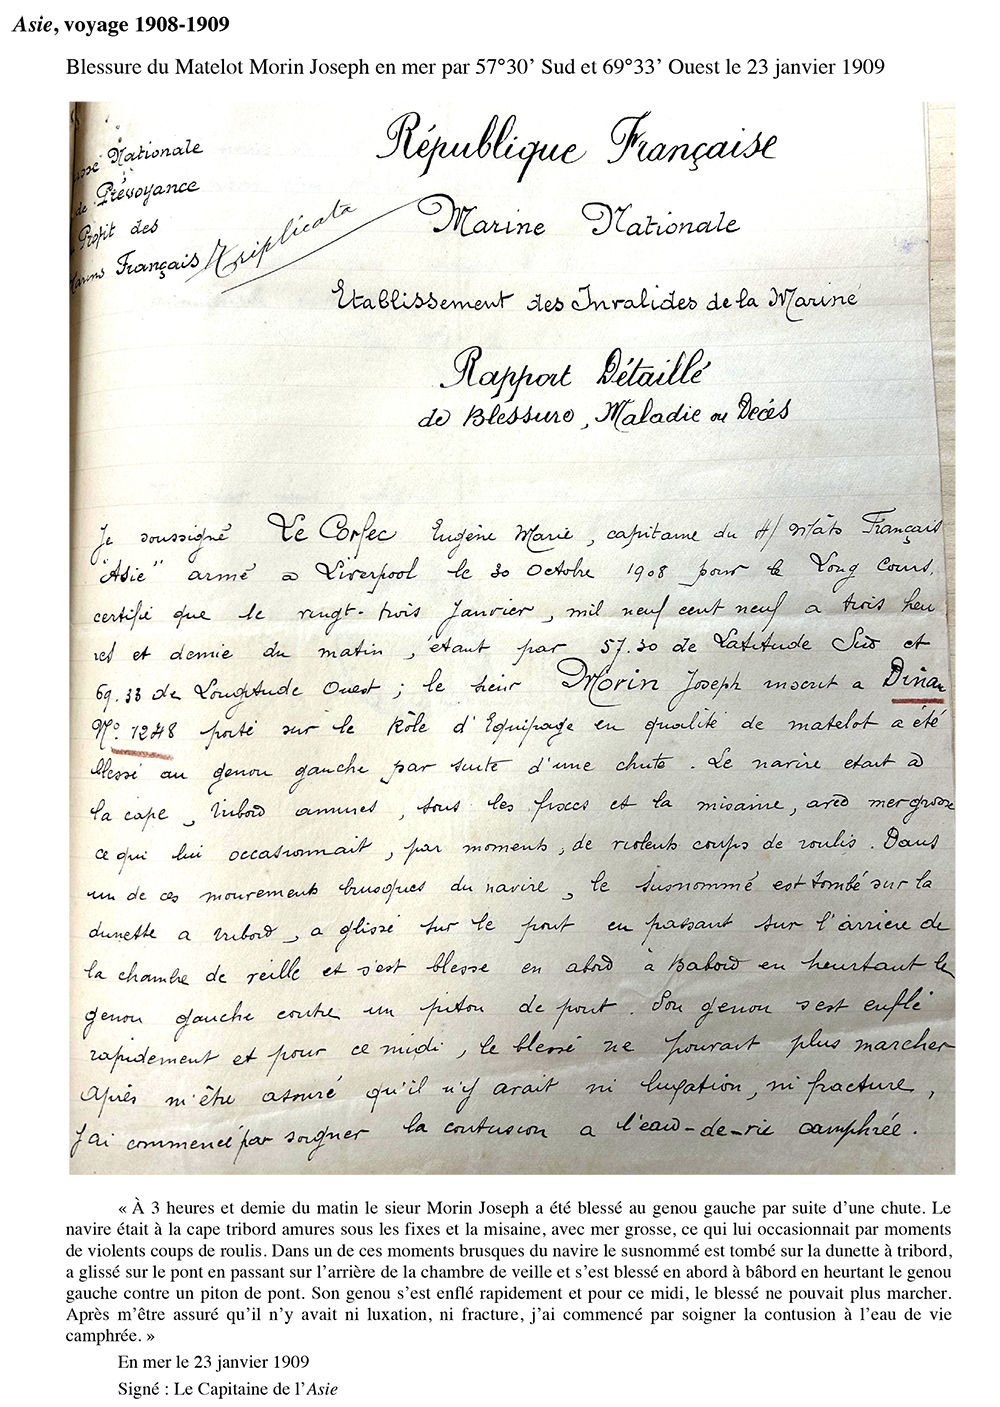 Asie, voyage 1908-1909
Blessure du Matelot Morin Joseph en mer par 57°30’ Sud et 69°33’ Ouest le 23 janvier 1909
République Française
Nationale
de Prévoyance
Profit des
Français Triplicata
Marine Nationale
Etablissement des Invalides de la Marine
Rapport Détaillé
de Blessure, Maladie ou Décès
Je soussigné Le Corfec Eugène Marie, capitaine du 4/ Mâts Français
"Asie" armé à Liverpool le 30 Octobre 1908 pour le Long Cours,
certifie que le vingt-trois Janvier, mil neuf cent neuf à trois heu
res et demie du matin, étant par 57.30 de Latitude Sud et
69.33 de Longitude Ouest ; le sieur Morin Joseph inscrit à Dinan
No. 1248 porté sur le Rôle d'Equipage en qualité de matelot a été
blessé au genou gauche par suite d'une chute. Le navire était à
la cape, tribord amures, sous les fixes et la misaine, avec mer grosse
ce qui lui occasionnait, par moments, de violents coups de roulis. Dans
un de ces mouvements brusques du navire, le susnommé est tombé sur la
dunette à tribord, a glissé sur le pont en passant sur l'arrière de
la chambre de veille et s'est blessé en abord à Babord en heurtant le
genou gauche contre un piton de pont. Son genou s'est enflé
rapidement et pour ce midi, le blessé ne pouvait plus marcher
Après m'être assuré qu'il n'y avait ni luxation, ni fracture,
J'ai commencé par soigner la contusion à l'eau-de-vie camphrée.
« À 3 heures et demie du matin le sieur Morin Joseph a été blessé au genou gauche par suite d’une chute. Le
navire était à la cape tribord amures sous les fixes et la misaine, avec mer grosse, ce qui lui occasionnait par moments
de violents coups de roulis. Dans un de ces moments brusques du navire le susnommé est tombé sur la dunette à tribord,
a glissé sur le pont en passant sur l’arrière de la chambre de veille et s’est blessé en abord à bâbord en heurtant le genou
gauche contre un piton de pont. Son genou s’est enflé rapidement et pour ce midi, le blessé ne pouvait plus marcher.
Après m’être assuré qu’il n’y avait ni luxation, ni fracture, j’ai commencé par soigner la contusion à l’eau de vie
camphrée. »
En mer le 23 janvier 1909
Signé : Le Capitaine de l’Asie